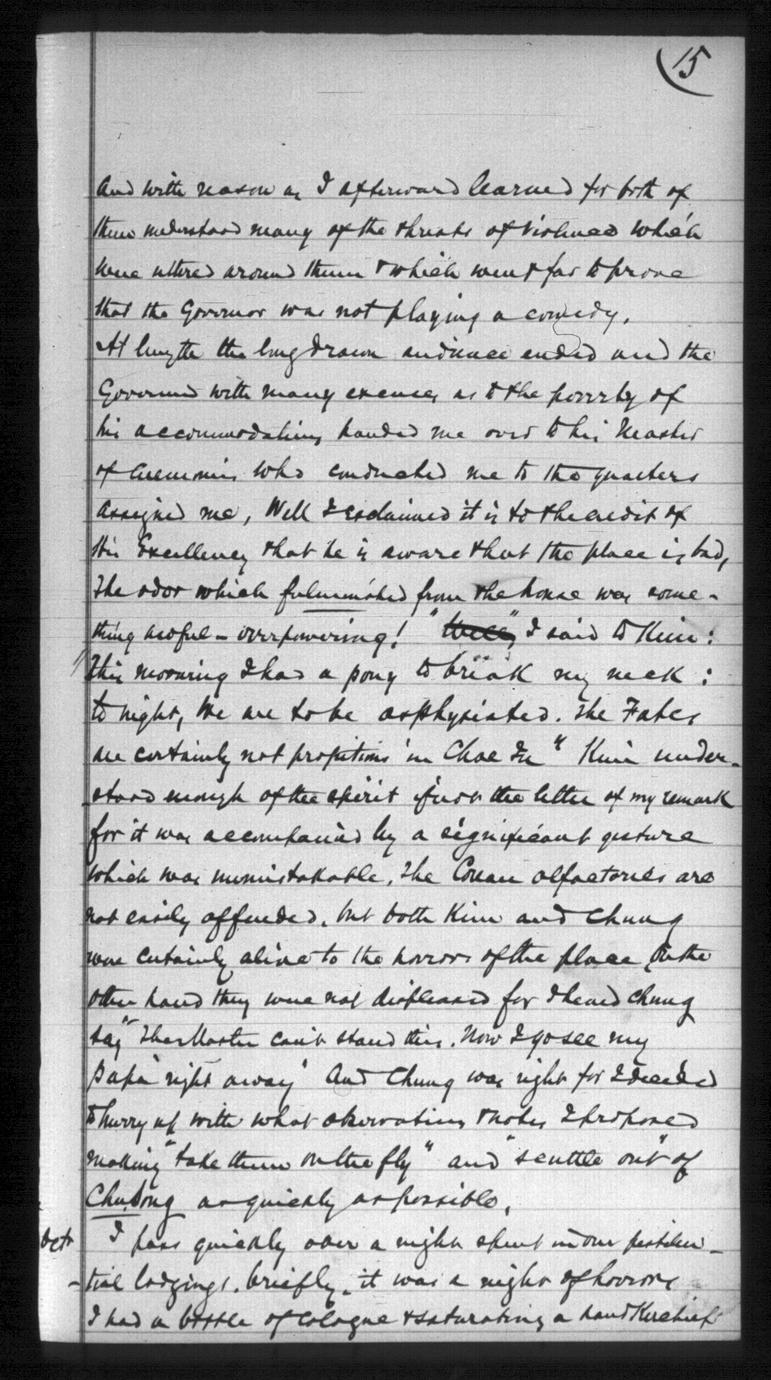 15
And with reason as I afterward learned for both of
them understood many of the threats of violence which
were uttered around them & which went far to prove
that the Governor was not playing a comedy.
At length the long drawn audience ended and the
Governor with many excuses as to the poverty of
his accommodations handed me over to his Master
of Ceremonies who conducted me to the quarters
assigned me, Well I exclaimed it is to the credit of
His Excellency that he is aware that the place is bad,
The odor which fulminated from the house was some-
thing awful - overpowering! "Well," I said to Kim:
"This morning I had a pony to break my neck:
to night, we are to be asphyxiated. The Fates
are certainly not propitious in Choe Fu" Kim under-
stood enough of the spirit if not the letter of my remark
for it was accompanied by a significant gesture
which was unmistakable. The Corean olfactories are
not easily offended, but both Kim and Chung
were certainly alive to the horrors of the place, On the
other hand they were not displeased for I heard Chung
say "The Master can't stand this. Now I go see my
papa right away" And Chung was right for I decided
to hurry up with what observations & notes I proposed
making "take them on the fly" and "scuttle out" of
Chulong as quickly as possible.
Oct I pass quickly over a night spent in our pestilen-
-tial lodgings. briefly, it was a night of horrors
I had a bottle of cologne & saturating a handkerchief